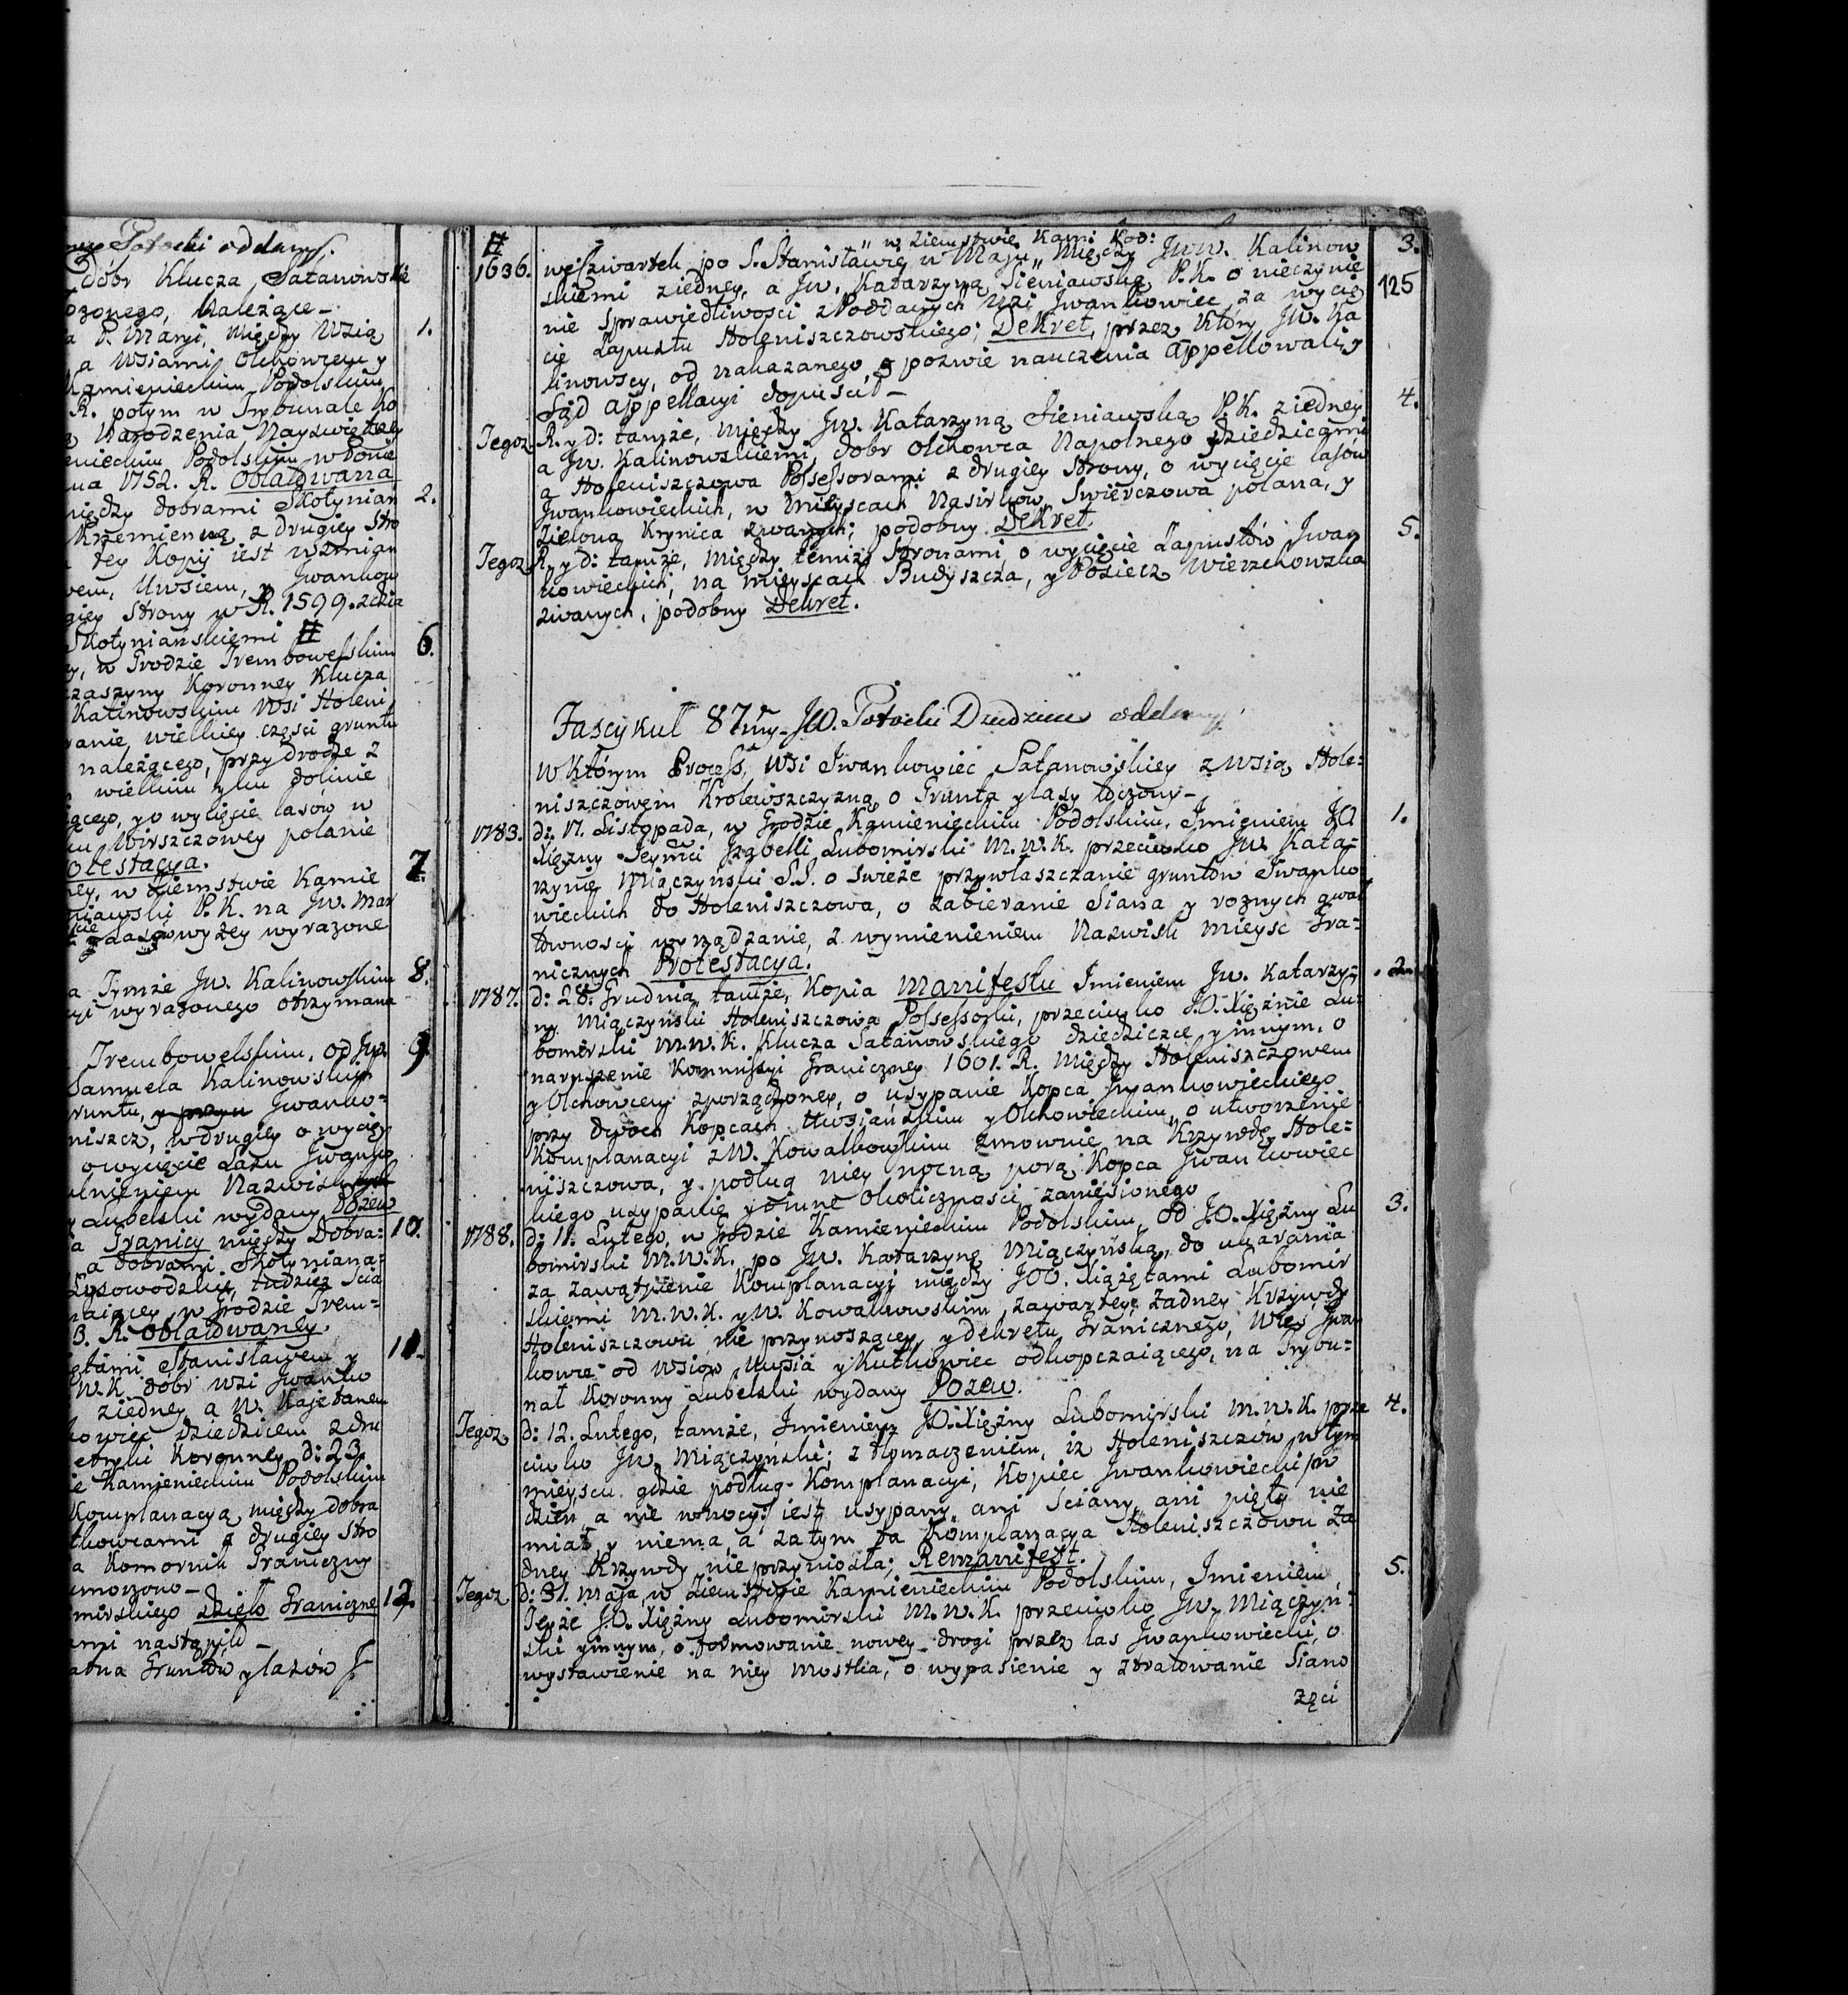 Potocki oddany.
dóbr Klucza Satanowskie
należące
P. Maryi, między Wsią
1.
a Wsiami Olchowcem y
Kamienieckim Podolskim
R. potym w Trybunale Ko
Narodzenia Nayswiętszey
Podolskim w Ponie
1752. R. Oblatowana
między dobrami Skotynian
2.
Krzemienną z drugiey Stro
tey Kopij iest wzmian
Uwsiem, y Jwankow
Strony w R. 1599. zezia
Skotynianskiemi #
6.
w Grodzie Trembowelskim
Koronney Klucza
Kalinowskim Wsi Holeni
wielkiey częsci gruntu
należącego, przy drodze z
wielkim y ku dolinie
y o wycięcie lasów w
Wirszczowey polanie
Protestacya.
w Ziemstwie Kamie
7.
P.K. na Jw. Mar
wyżey wyrażone
Tymże Jw. Kalinowskim
8.
wyrażonego otrzymana
Trembowelskim, od Jw.
9.
Samuela Kalinowskim
gruntu, Jwanko-
w drugiey o wycię
o wycięcie Lazu Jwanko
Nazwisk
Lubelski wydany Pozew
Granicy między Dobra-
10.
a dobrami Skotyniana-
tudzież Scia
w Grodzie Trem-
R. Oblatowaney.
Stanisławem y
11.
W.K. dóbr wsi Jwanko
ziedney a W. Kajetanem
dziedzicem z dru
Koronney d: 23
Kamienieckim Podolskim
Komplanacyą między dobra
z drugiey Stro
Komornik Graniczny
umorzono-
Dzieło Graniczne
12.
nastąpiło-
Gruntów y lazów
#
w Ziemstwie Kami: Pod:
3.
1636.
we Czwartek po S. Stanisławie w Maju, Między JWW. Kalinow
125
skiemi ziedney, a Jw. Katarzyną Sieniawską P.K. o nieczynie
nie Sprawiedliwosci z Poddanych Wsi Jwankowiec za wycię
cie Zapustu Holeniszczowskiego; Dekret, przez który Jw. Ka
linowscy, od nakazanego, o pozwie nauczenia appellowali, y
Sąd appellacyi dopuscił-
4.
Tegoz
R. y d: tamże, między Jw. Katarzyną Sieniawską P.K. ziedney
a Jw. Kalinowskiemi, dobr Olchowca Napolnego dziedzicami
a Holeniszczowa Possessorami z drugiey Strony, o wycięcie lasów
Jwankowieckich, w mieyscach Nasirkow, Swierczowa polana, y
Zielona Krynica zwanych; podobny Dekret.
5.
Tegoz
R. y d: tamże, Między temiż Stronami, o wycięcie Zapustów Jwan
kowieckich, na mieyscach Budyszcza, y Posiecz Wierzchowska
zwanych, podobny Dekret.
Fascykuł 87my JW. Potocki Dziedzicow oddany.
w którym Process, Wsi Jwankowiec Satanowskiey z Wsią Hole-
niszczowem Krolewszczyzną o Grunta y lasy toczony-
1.
1783.
d: 17. Listopada, w Grodzie Kamienieckim Podolskim, Jmieniem JO
Xiężny Jeymci Jzabelli Lubomirski M.W.K. przeciwko Jw. Kata-
rzynie Miączyński S.S. o świeże przywłaszczanie gruntów Jwanko-
wieckich do Holeniszczowa, o zabieranie Siana y roznych gwał
townosci wyrządzanie, z wymienieniem Nazwisk mieysc Gra-
nicznych Protestacya.
2.
1787.
d: 28. Grudnia tamże, Kopia Manifestu Jmieniem Jw. Katarzy-
ny Miączyński Holeniszczowa Possessorki, przeciwko J.O. Xiężnie Lu-
bomirski M.W.K. Klucza Satanowskiego dziedziczce y innym, o
naruszenie Kommissyi Graniczney 1601. R. Między Holeniszczowem
y Olchowcem zporządzoney, o usypanie Kopca Jwankowieckiego
przy dwoch Kopcach Uwsianskim y Olchowieckim, o utworzenie
Komplanacyi z W. Kowalkowskim zmownie na Krzywdę Hole-
niszczowa, y podług niey nocną porą Kopca Jwankowiec
kiego usypanie y o inne okolicznosci zaniesionego
3.
1788.
d: 11. Lutego, w Grodzie Kamienieckim Podolskim, od J.O. Xiężny Lu
bomirski M.W.K. po Jw. Katarzynę Miączyńską, do ukarania
za zawątpienie Komplanacyi między JOO. Xiążętami Lubomir
skiemi M.W.K. y W. Kowalkowskim zawartey; żadney Krzywdy
Holeniszczowu nie przynoszącey, y dekretu Granicznego, Wieś Jwan
kowce od wsiow Uwsia y Kutkowiec odkopczaiącego, na Trybu-
nał Koronny Lubelski wydany Pozew.
4.
Tegoz
d: 12. Lutego, tamże, Jmieniem J.O. Xiężny Lubomirski M.W.K. prze
ciwko Jw. Miączyński; z tłomaczeniem, iż Holeniszczów w tym
mieyscu gdzie podług Komplanacyi, Kopiec Jwankowiecki /:w
dzień a nie w nocy:/ iest usypany, ani Sciany, ani pięty nie
miał, y niema, a zatym ta Komplanacya Holeniszczowu ża
dney Krzywdy nie przyniosła; Remanifest.
5.
Tegoz
d: 31. Maja w Ziemstwie Kamienieckim Podolskim, Jmieniem
Teyże J.O. Xiężny Lubomirski M.W.K. przeciwko Jw. Miączyń-
ski y innym, o formowanie nowey drogi przez las Jwankowiecki, o
wystawienie na niey mostka, o wypasienie y ztratowanie Siano
żęci